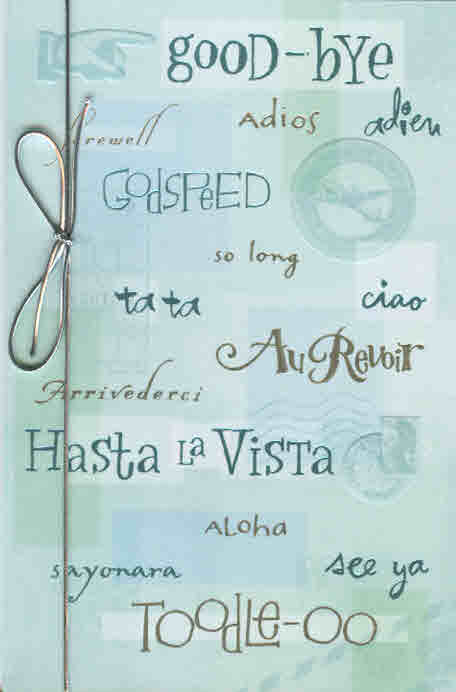 gooD-bye
Farewell
Adios
adieu
GODSPEED
so long
ta ta
ciao
Au Revoir
Arrivederci
Hasta La Vista
Aloha
sayonara
see ya
Toodle-oo